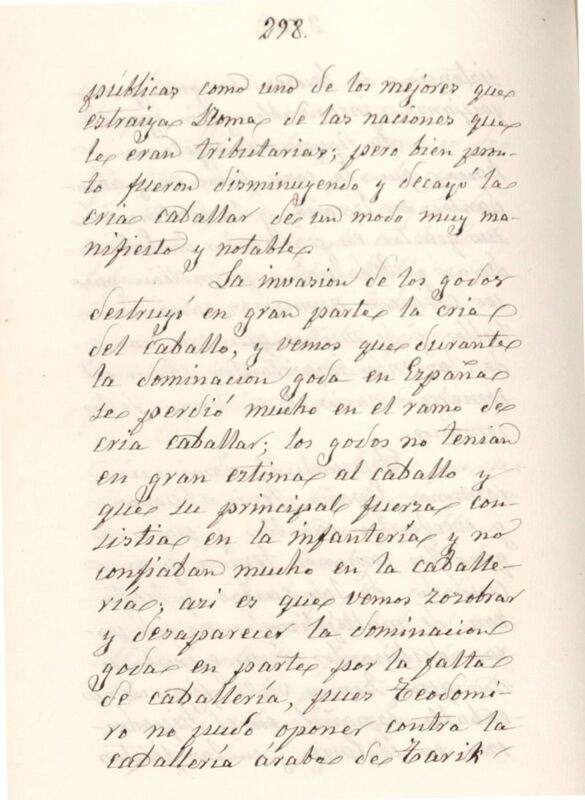 298.
públicas como uno de los mejores que
estraiga Roma de las naciones que
le eran tributarias; pero bien pron-
to fueron disminuyendo y decayó la
cria caballar de un modo muy ma-
nifiesto y notable
La invasion de los godos
destruyó en gran parte la cria
del caballo, y vemos que durante
la dominacion goda en España
se perdió mucho en el ramo de
cria caballar; los godos no tenian
en gran estima al caballo y
que su principal fuerza con-
sistia en la infantería y no
confiaban mucho en la caballe-
ría; asi es que vemos zozobrar
y desaparecer la dominacion
goda en parte por la falta
de caballería, pues Teodomi-
ro no pudo oponer contra la
caballería árabe de Tarik